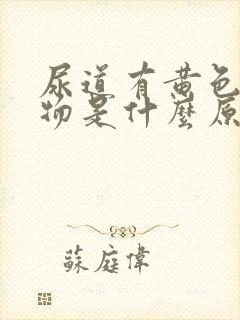 尿道有黄色
物是什麼原
蘇庭偉